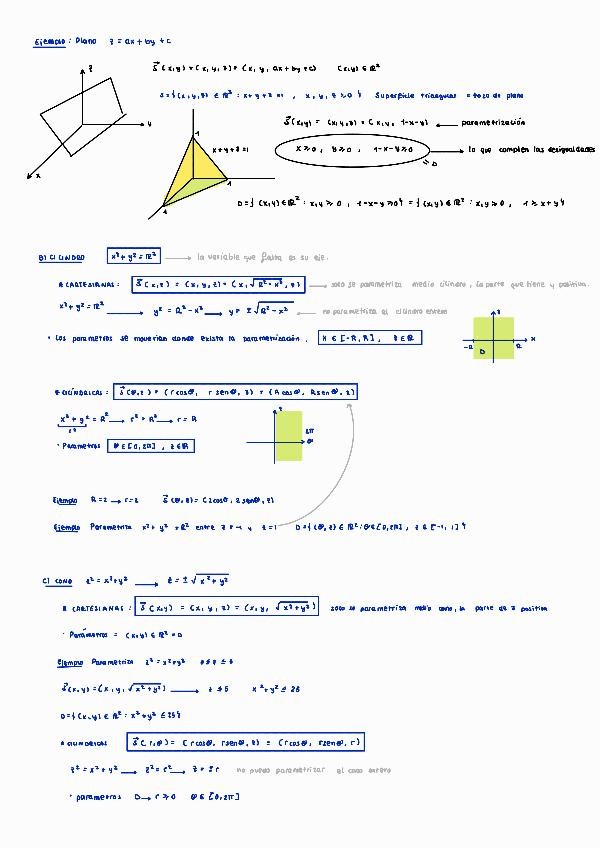 Ejemplo: Plano z = ax + by + c
z
y
x
S⃗(x,y) = (x, y, z) = (x, y, ax + by + c) (x,y) ∈ ℝ²
S = {(x,y,z) ∈ ℝ³ : x+y+z=1 , x, y, z ≥ 0} Superficie triangular = trozo de plano
S⃗(x,y) = (x,y,z) = (x, y, 1-x-y) ← parametrización
x+y+z=1
1
1
1
x ≥ 0, y ≥ 0, 1-x-y ≥ 0 → lo que cumplen las desigualdades
= D
D = {(x,y) ∈ ℝ² : x,y ≥ 0, 1-x-y ≥ 0} = {(x,y) ∈ ℝ² : x,y ≥ 0, 1 ≥ x+y}
B) CILINDRO x² + y² = R² → la variable que falta es su eje.
* CARTESIANAS: S⃗(x,z) = (x, y, z) = (x, √R² - x², z) → solo se parametriza medio cilindro, la parte que tiene y positiva.
x² + y² = R² → y² = R² - x² → y = ± √R² - x² ← no parametriza el cilindro entero
• Los parámetros se moverían donde exista la parametrización, x ∈ [-R, R], z ∈ ℝ
z
x
-R
R
D
* CILÍNDRICAS: S⃗(θ,z) = (r cosθ, r senθ, z) = (R cosθ, R senθ, z)
x² + y² = R² → r² = R² → r = R
r²
• Parámetros θ ∈ [0, 2π], z ∈ ℝ
z
2π
θ
Ejemplo R = 2 → r = 2 S⃗(θ,z) = (2cosθ, 2senθ, z)
Ejemplo Parametriza x² + y² = R² entre z = -1 y z = 1 D = {(θ,z) ∈ ℝ² : θ ∈ [0, 2π], z ∈ [-1, 1]}
C) CONO z² = x² + y² → z = ± √x² + y²
* CARTESIANAS: S⃗(x,y) = (x, y, z) = (x, y, √x² + y²) solo se parametriza medio cono, la parte de z positiva
• Parámetros = (x,y) ∈ ℝ² = D
Ejemplo Parametriza z² = x² + y² 0 ≤ z ≤ 5
S⃗(x,y) = (x, y, √x² + y²) → z ≤ 5 x² + y² ≤ 25
D = {(x,y) ∈ ℝ² : x² + y² ≤ 25}
* CILÍNDRICAS S⃗(r,θ) = (r cosθ, r senθ, z) = (r cosθ, r senθ, r)
z² = x² + y² → z² = r² → z = ± r no puedo parametrizar el cono entero
• parámetros D → r ≥ 0 θ ∈ [0, 2π]